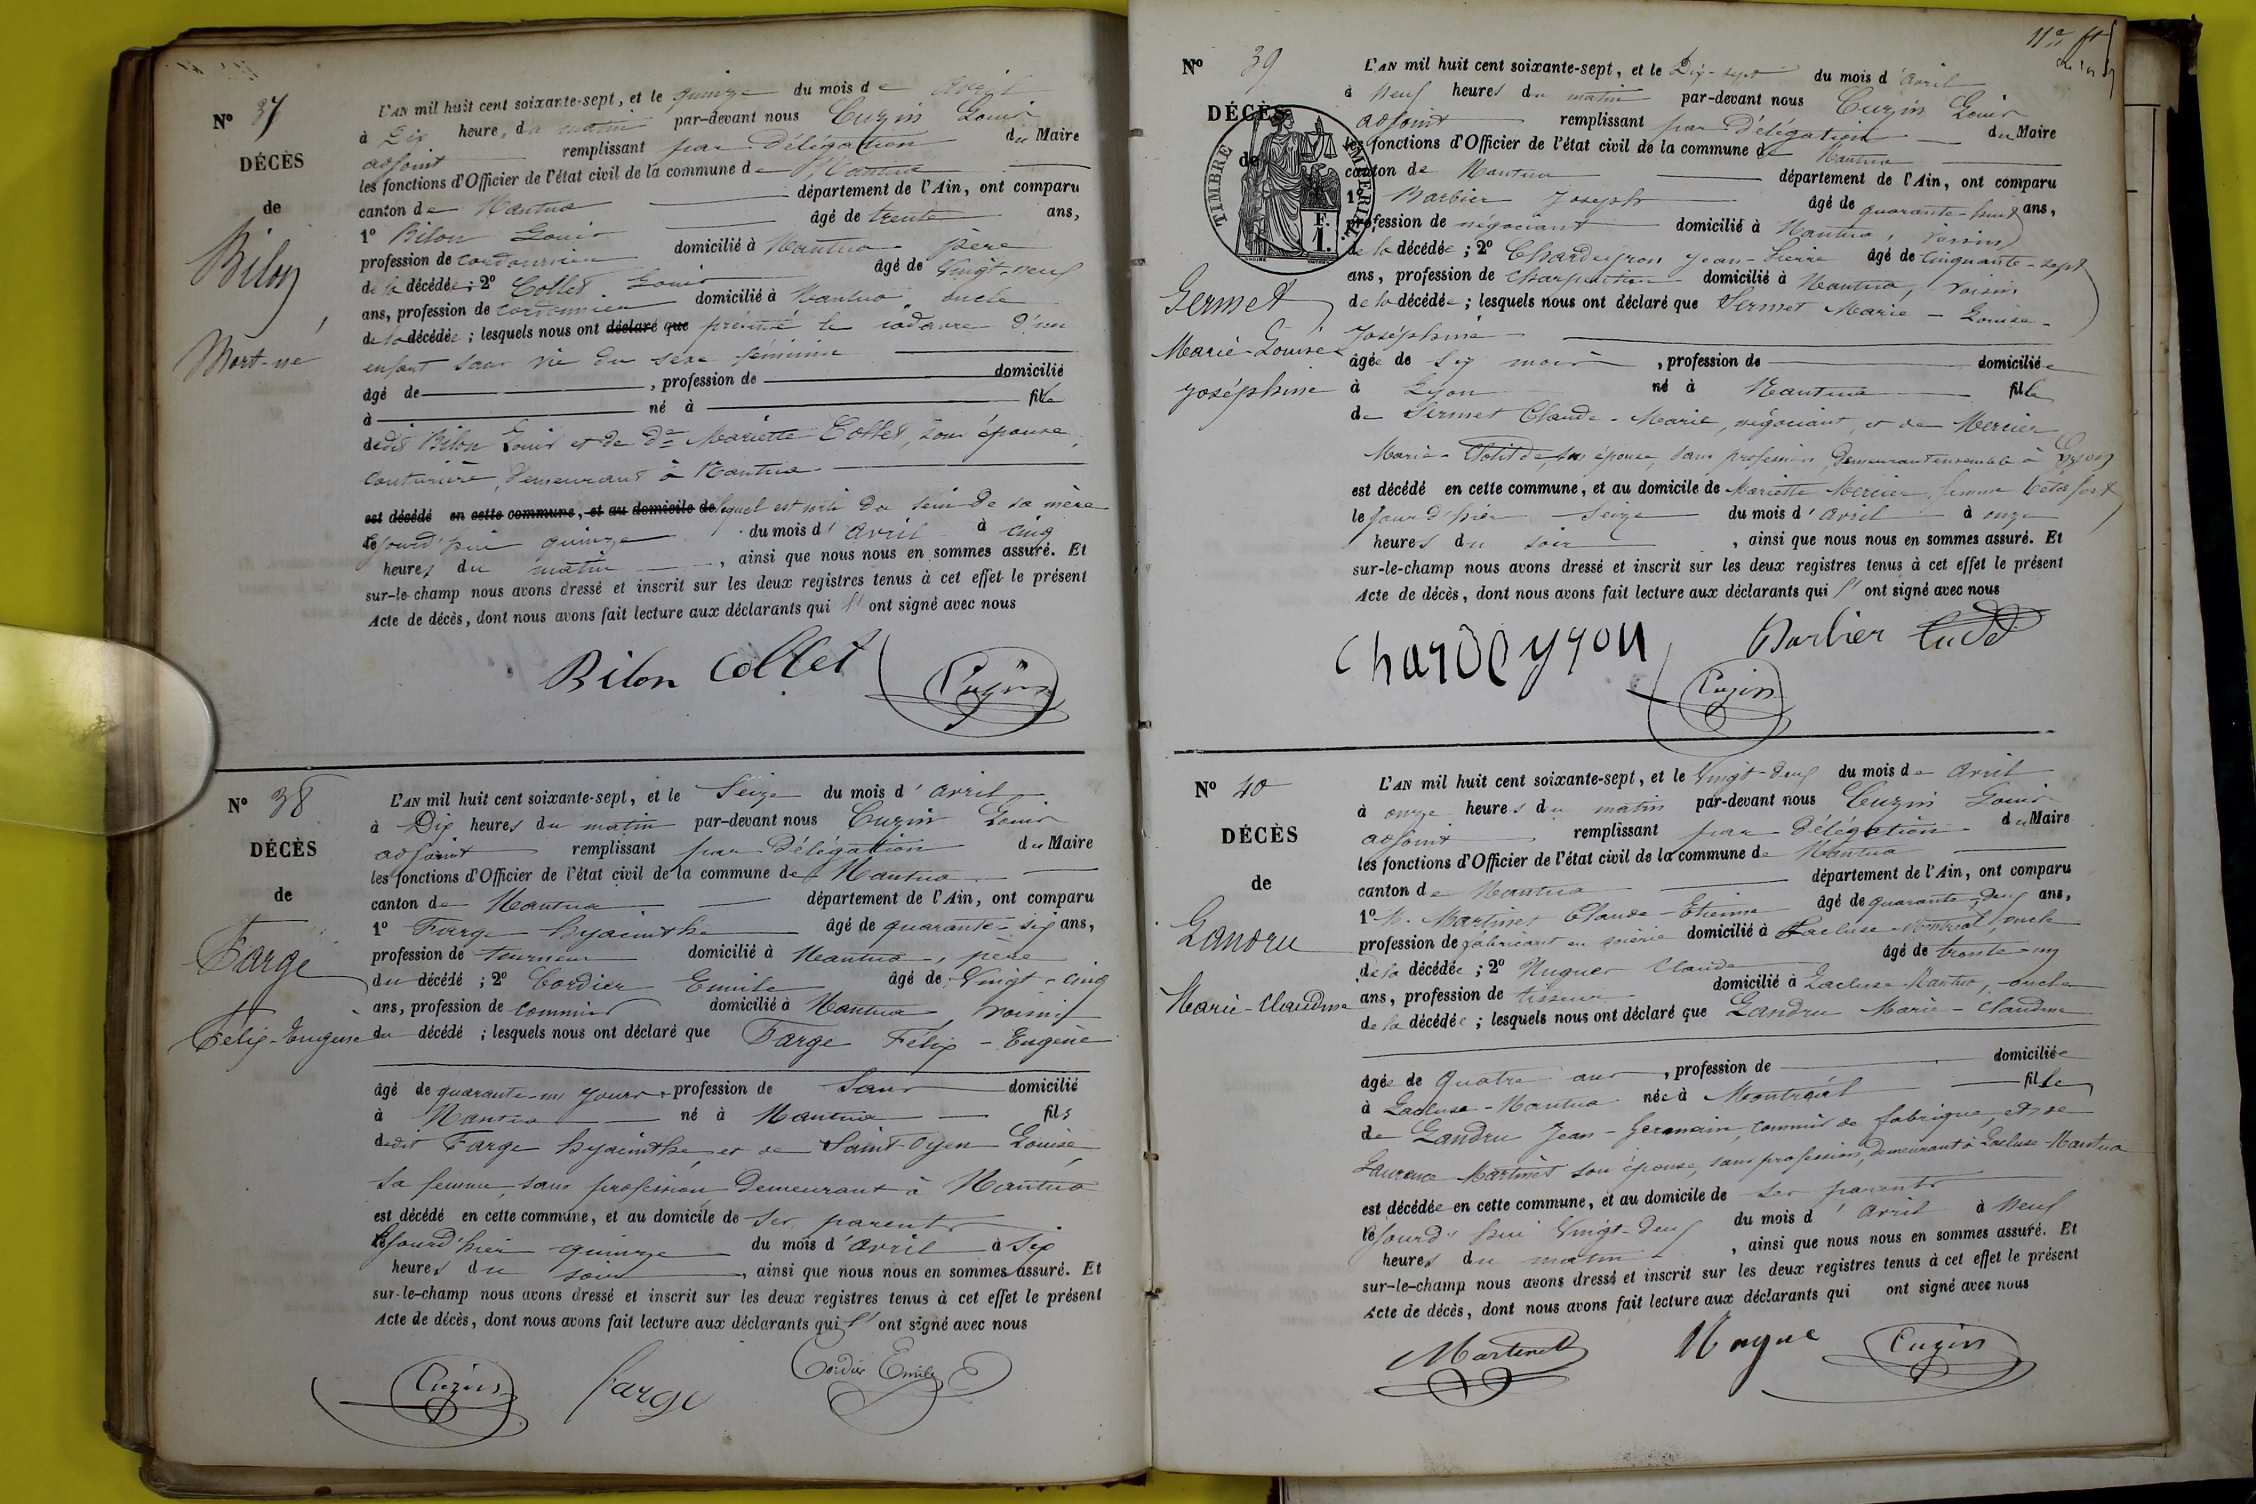 N° 37
DÉCÈS
de
Bilon
Mort-né
L'AN mil huit cent soixante-sept, et le quinze du mois de Avril
à Dix heures du matin par-devant nous Cuzin Louis
adjoint remplissant par Délégation du Maire
les fonctions d'Officier de l'état civil de la commune de Nantua
canton de Nantua département de l'Ain, ont comparu
1° Bilon Louis âgé de trente ans,
profession de cordonnier domicilié à Nantua père
de la décédée; 2° Collet Louis âgé de Vingt-neuf
ans, profession de cordonnier domicilié à Nantua, oncle
de la décédée; lesquels nous ont déclaré que présenté le cadavre d'un
enfant sans vie du sexe féminin
âgé de , profession de domicilié
à né à fille
de dit Bilon Louis et de De Mariette Collet, son épouse,
couturière, Demeurant à Nantua
est décédé en cette commune, et au domicile de lequel est sorti du sein de sa mère
le jourd'hui quinze du mois d'avril à cinq
heures du matin , ainsi que nous nous en sommes assuré. Et
sur-le-champ nous avons dressé et inscrit sur les deux registres tenus à cet effet le présent
Acte de décès, dont nous avons fait lecture aux déclarants qui l' ont signé avec nous
Bilon Collet Cuzin
N° 38
DÉCÈS
de
Farge
Félix-Eugène
L'AN mil huit cent soixante-sept, et le Seize du mois d'avril
à Dix heures du matin par-devant nous Cuzin Louis
adjoint remplissant par Délégation du Maire
les fonctions d'Officier de l'état civil de la commune de Nantua
canton de Nantua département de l'Ain, ont comparu
1° Farge hyacinthe âgé de quarante-six ans,
profession de tourneur domicilié à Nantua, père
du décédé; 2° Cordier Emile âgé de Vingt-cinq
ans, profession de commis domicilié à Nantua voisin
du décédé; lesquels nous ont déclaré que Farge Félix-Eugène
âgé de quarante-un jours, profession de Sans domicilié
à Nantua né à Nantua fils
de dit Farge hyacinthe, et de Saint-Oyen Louise,
sa femme, sans profession Demeurant à Nantua
est décédé en cette commune, et au domicile de ses parents
le jourd'hier quinze du mois d'avril à Six
heures du soir , ainsi que nous nous en sommes assuré. Et
sur-le-champ nous avons dressé et inscrit sur les deux registres tenus à cet effet le présent
Acte de décès, dont nous avons fait lecture aux déclarants qui l' ont signé avec nous
Cuzin Farge Cordier Emile
N° 39
DÉCÈS
de
TIMBRE IMPÉRIAL
1 F.
Sermet
Marie-Louise
Joséphine
L'AN mil huit cent soixante-sept, et le Dix-sept du mois d'avril
à Neuf heures du matin par-devant nous Cuzin Louis
adjoint remplissant par Délégation du Maire
les fonctions d'Officier de l'état civil de la commune de Nantua
canton de Nantua département de l'Ain, ont comparu
1° Barbier Joseph âgé de quarante-huit ans,
profession de négociant domicilié à Nantua, voisin
de la décédée; 2° Chardeyron Jean-Pierre âgé de Cinquante-sept
ans, profession de charpentier domicilié à Nantua, voisin
de la décédée; lesquels nous ont déclaré que Sermet Marie-Louise-
Joséphine
âgée de Six mois , profession de domiciliée
à Lyon né à Nantua fille
de Sermet Claude-Marie, négociant, et de Mercier
Marie-Clotilde, son épouse, sans profession, Demeurant ensemble à Lyon
est décédé en cette commune, et au domicile de Mariette Mercier, femme
le jourd'hier Seize du mois d'avril à onze
heures du soir , ainsi que nous nous en sommes assuré. Et
sur-le-champ nous avons dressé et inscrit sur les deux registres tenus à cet effet le présent
Acte de décès, dont nous avons fait lecture aux déclarants qui l' ont signé avec nous
Chardeyron Barbier
Cuzin
N° 40
DÉCÈS
de
Landru
Marie-Claudine
L'AN mil huit cent soixante-sept, et le Vingt-deux du mois de Avril
à onze heures du matin par-devant nous Cuzin Louis
adjoint remplissant par Délégation du Maire
les fonctions d'Officier de l'état civil de la commune de Nantua
canton de Nantua département de l'Ain, ont comparu
1° M. Martinet Claude-Etienne âgé de quarante-deux ans,
profession de fabricant en soierie domicilié à Lacluse-Montréal, oncle
de la décédée; 2° Nugues Claude âgé de trente-un
ans, profession de tisseur domicilié à Lacluse-Nantua, oncle
de la décédée; lesquels nous ont déclaré que Landru Marie-Claudine
âgée de Quatre ans , profession de domiciliée
à Lacluse-Nantua née à Montréal fille
de Landru Jean-Germain, commis de fabrique, et de
Laurence Martinet son épouse, sans profession, demeurant à Lacluse-Nantua
est décédée en cette commune, et au domicile de ses parents
le jourd'hui Vingt-deux du mois d'avril à Neuf
heures du matin , ainsi que nous nous en sommes assuré. Et
sur-le-champ nous avons dressé et inscrit sur les deux registres tenus à cet effet le présent
Acte de décès, dont nous avons fait lecture aux déclarants qui ont signé avec nous
Martinet Nugue Cuzin